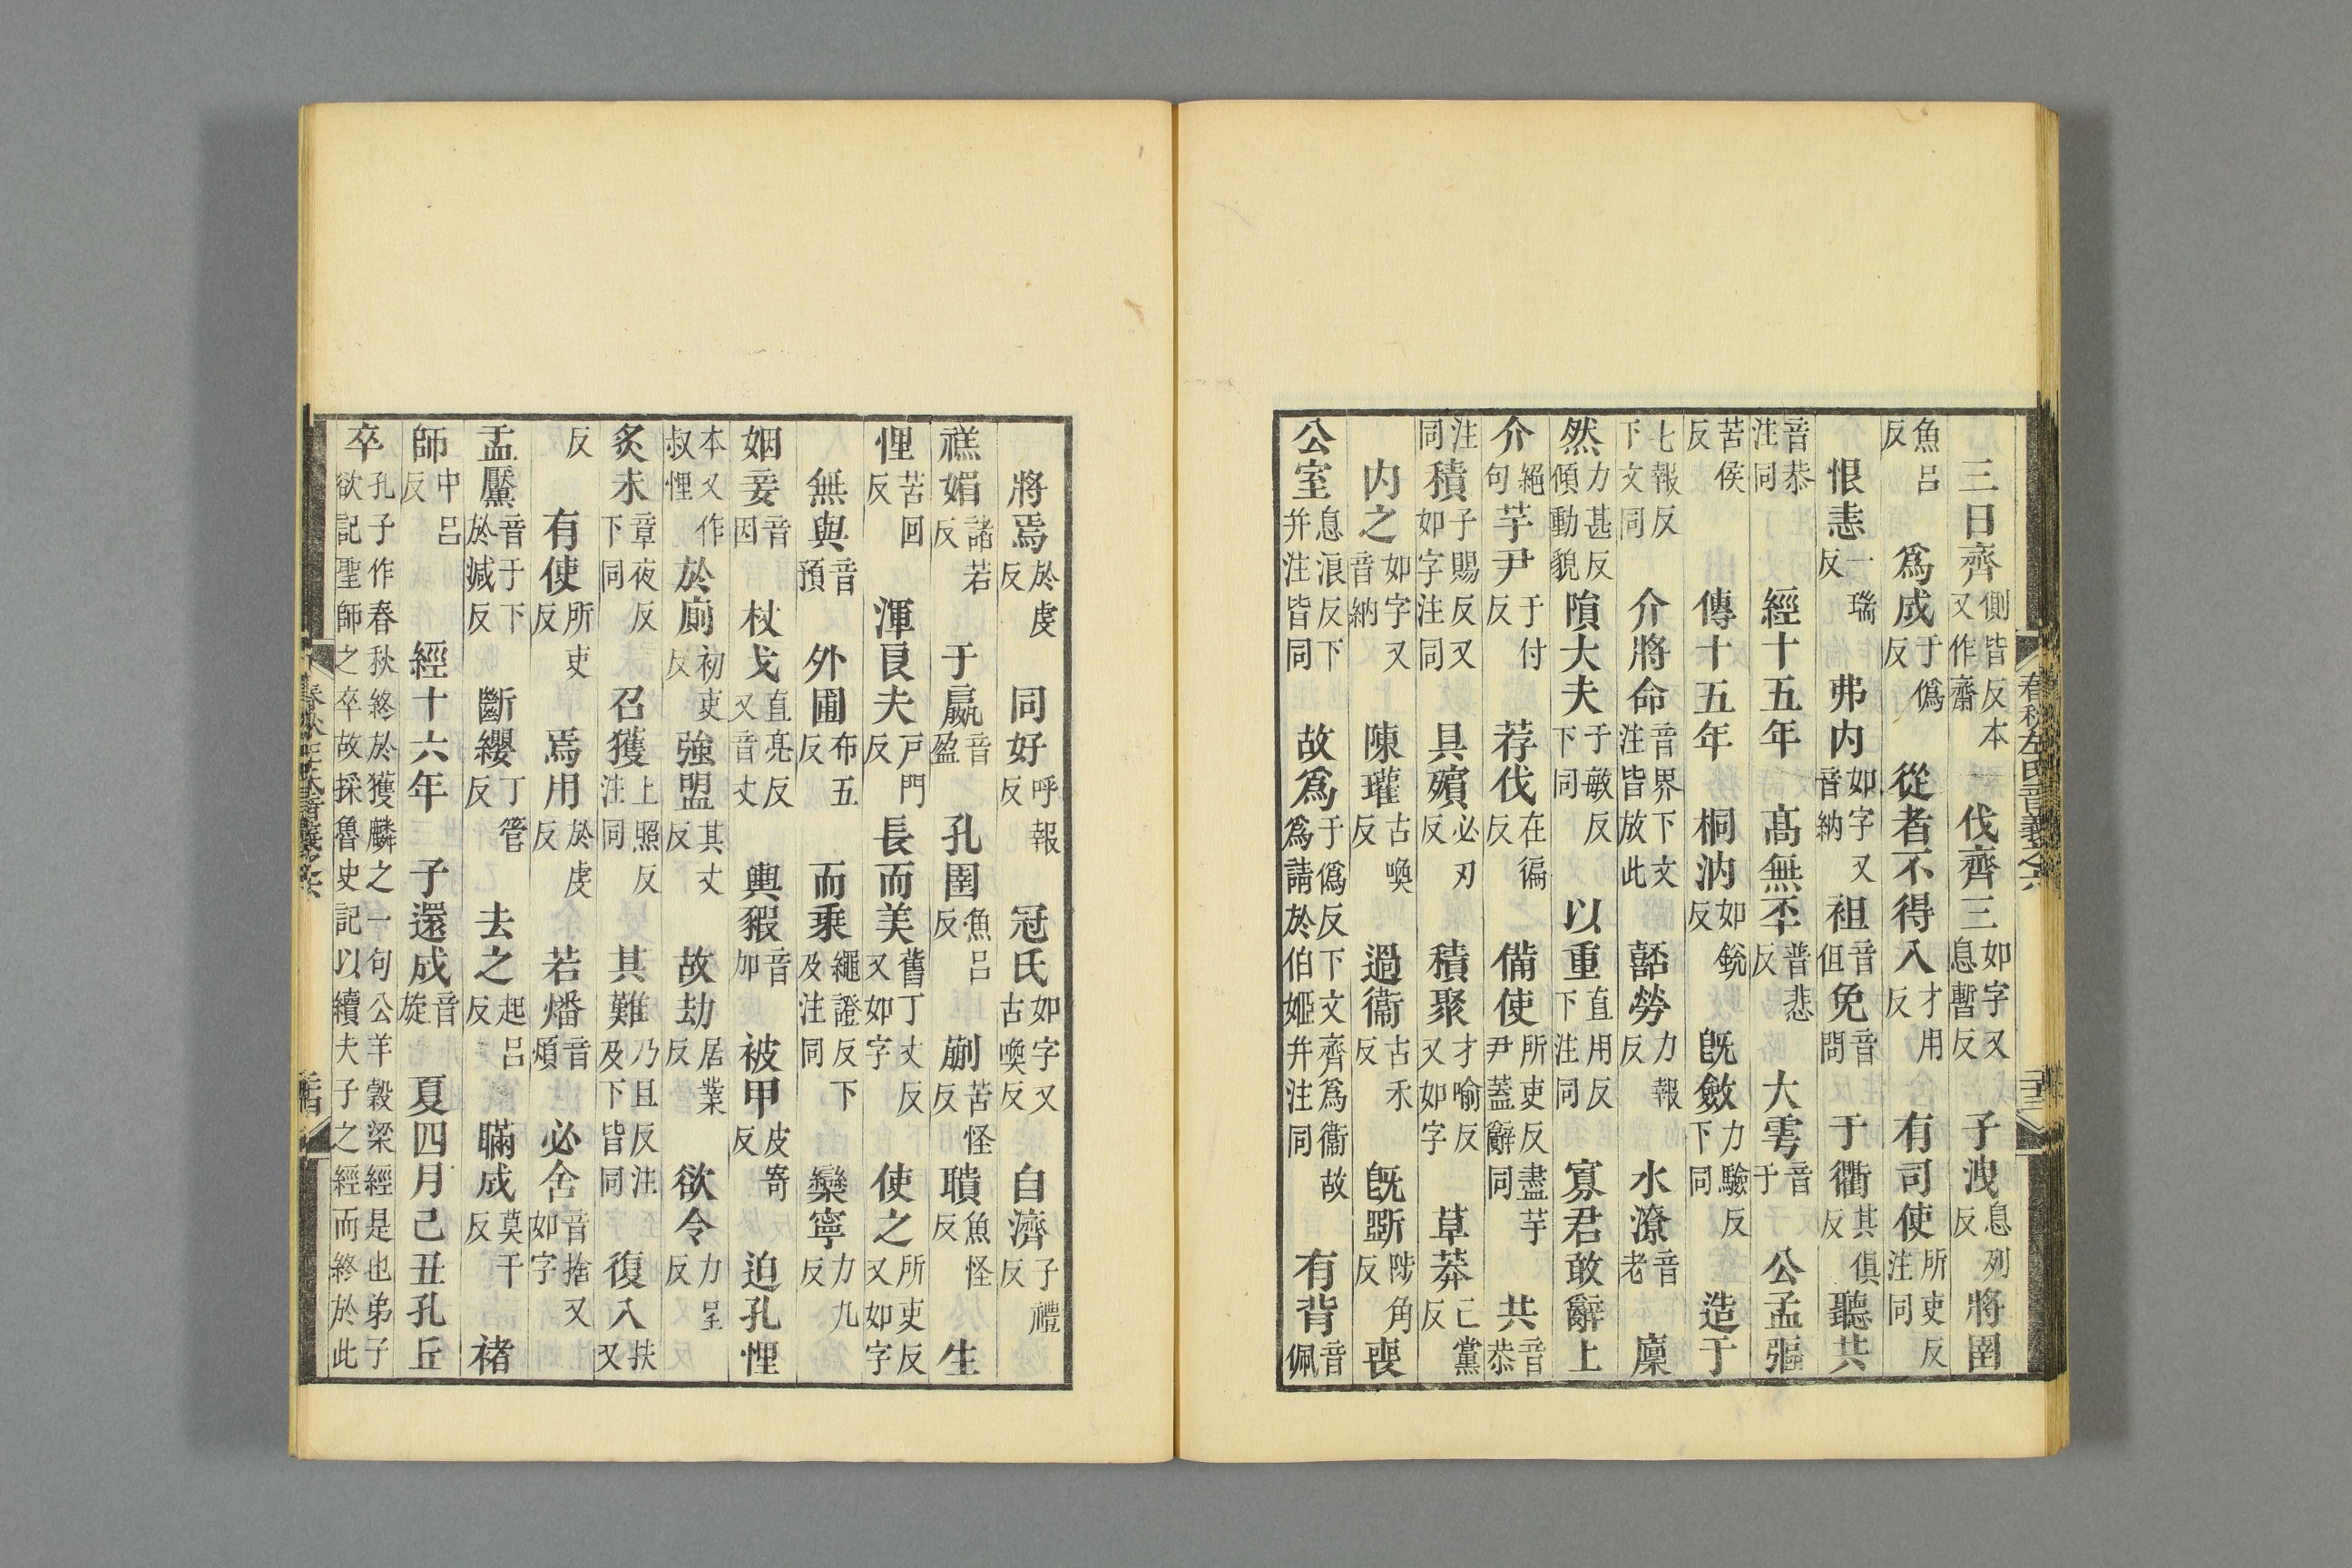 三日齊側皆反本又作齋　伐齊三如字又息暫反　子洩息列反　將圉
魚呂反　爲成于僞反　從者不得入才用反　有司使所吏反注同
恨恚一瑞反　弗内如字又音納　袒音但免音問　于衢其俱反　聽共
音恭注同　經十五年　高無㔻普悲反　大雩音于　公孟彄
苦侯反　傳十五年　桐汭如銳反　旣斂力驗反下同　造于
七報反下文同　介將命音界下文注皆放此　嚭勞力報反　水潦音老　廩
然力甚反傾動貌　隕大夫于敏反下同　以重直用反下注同　寡君敢辭上
介絕句　芋尹于付反　荐伐在徧反　備使所吏反盡芋尹蓋辭同　共音恭
注同　積子賜反又如字注同　具殯必刃反　積聚才喻反又如字　草莽亡黨反
内之如字又音納　陳瓘古喚反　過衞古禾反　旣斲陟角反　喪
公室息浪反下幷注皆同　故爲于僞反下文齊爲衞故爲請於伯姬幷注同　有背音佩
將焉於虔反　同好呼報反　冠氏如字又古喚反　自濟子禮反
禚媚諸若反　于嬴音盈　孔圉魚呂反　蒯苦怪反　聵魚怪反　生
悝苦回反　渾良夫戶門反　長而美舊丁丈反又如字　使之所吏反又如字
無與音預　外圃布五反　而乗繩證反下及注同　欒寧力九反
姻妾音因　杖戈直亮反又音丈　輿豭音加　被甲皮寄反　迫孔悝
本又作叔悝　於廁初吏反　強盟其丈反　故劫居業反　欲令力呈反
炙未章夜反下同　召獲上照反注同　其難乃旦反注及下皆同　復入扶又
反　有使所吏反　焉用於虔反　若燔音煩　必舍音捨又如字
孟黶音于下於減反　斷纓丁管反　去之起呂反　瞞成莫干反　褚
師中呂反　經十六年　子還成音旋　夏四月己丑孔丘
卒孔子作春秋終於獲麟之一句公羊穀梁經是也弟子欲記聖師之卒故採魯史記以續夫子之經而終於此